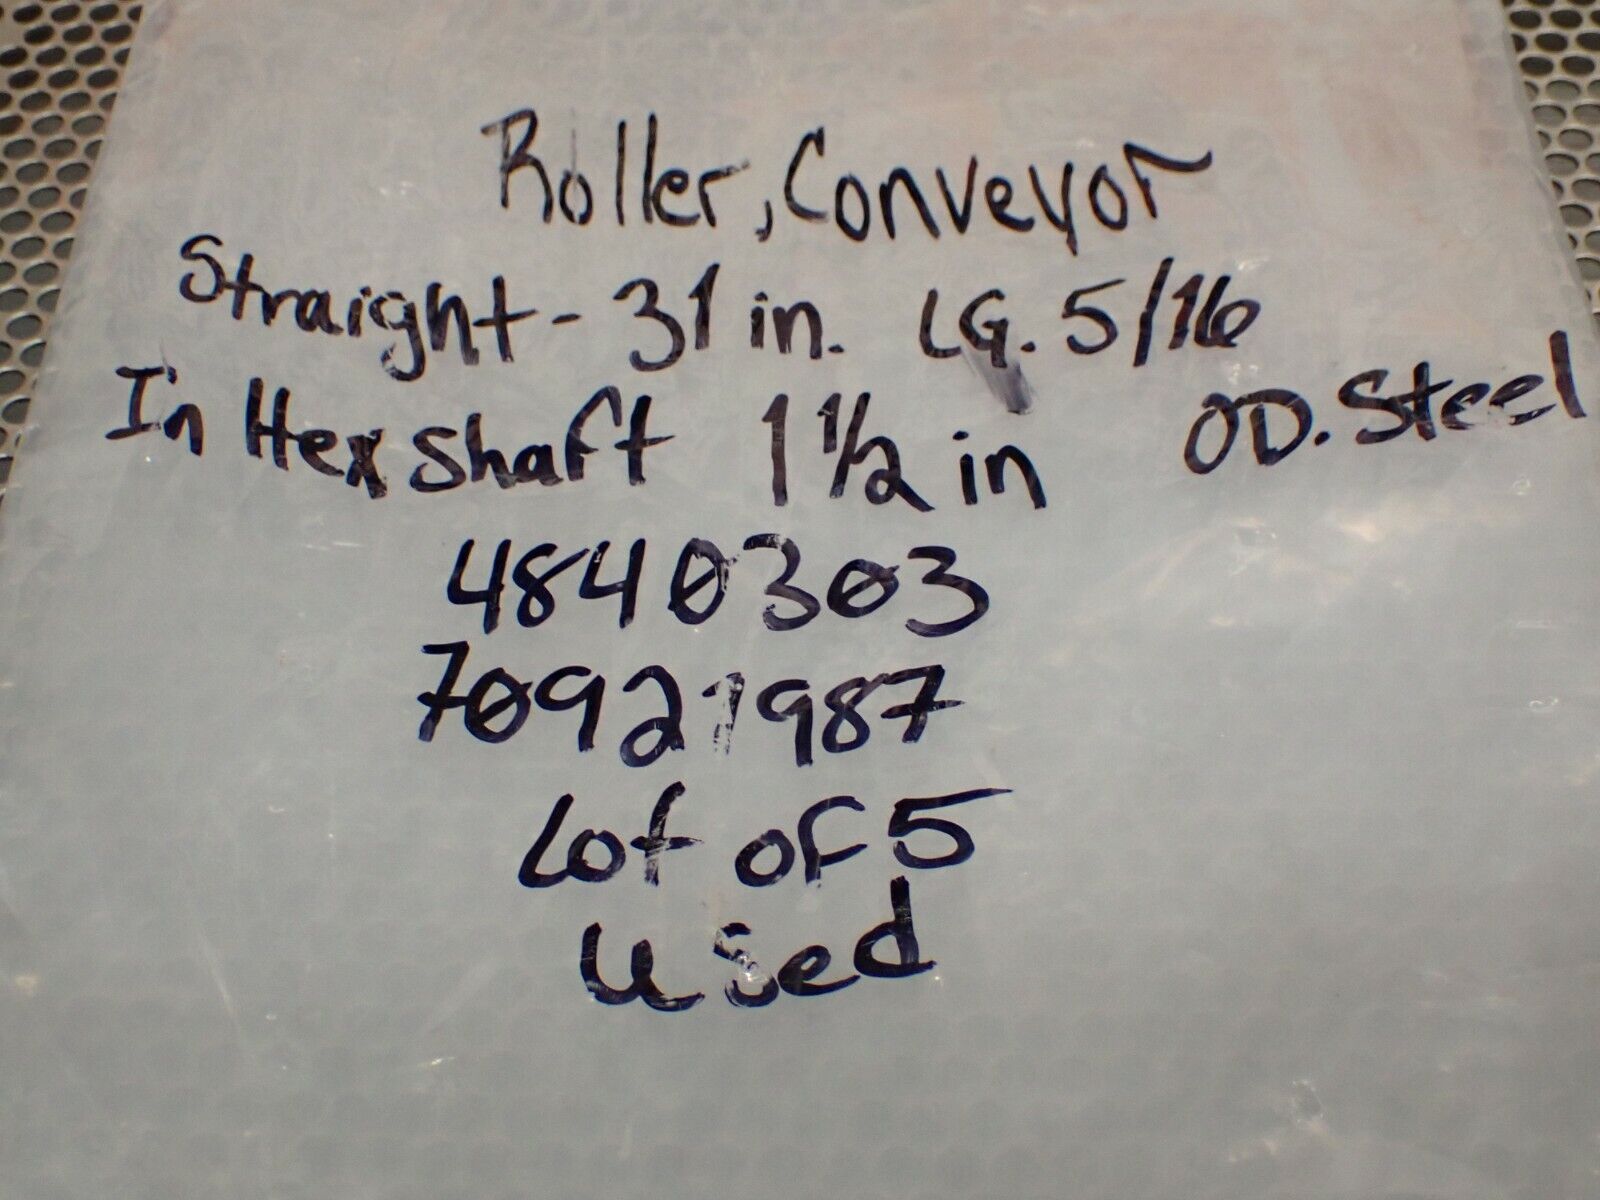 Roller, Conveyor
Straight - 31 in. LG. 5/16
In Hex Shaft 1 1/2 in OD. Steel
4840303
70921987
Lot of 5
Used